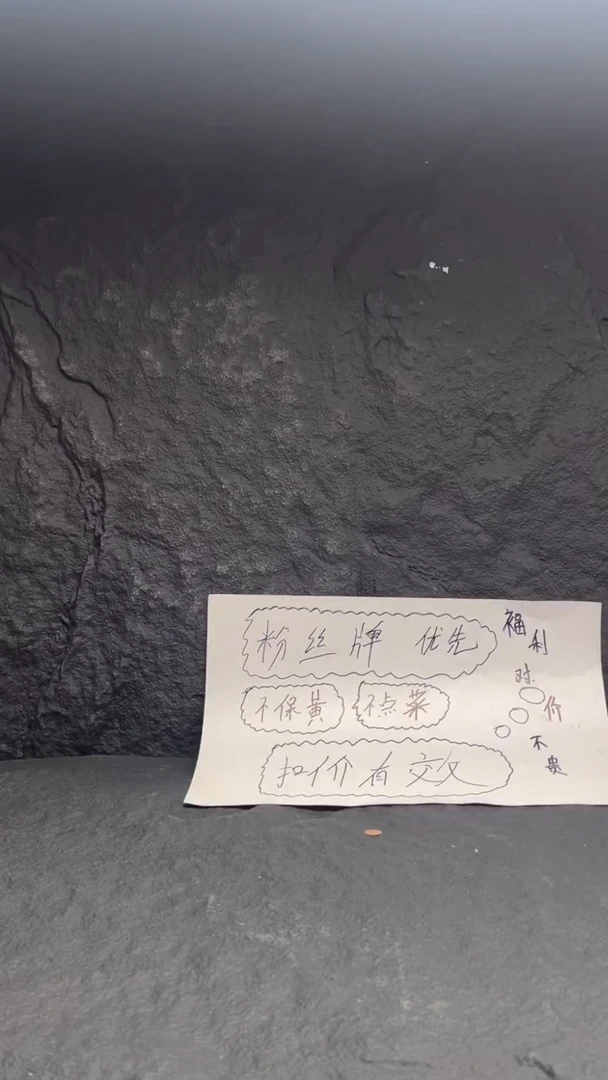 粉丝牌 优先
不保黄
不点菜
扣价有效
福利
对
价
不贵